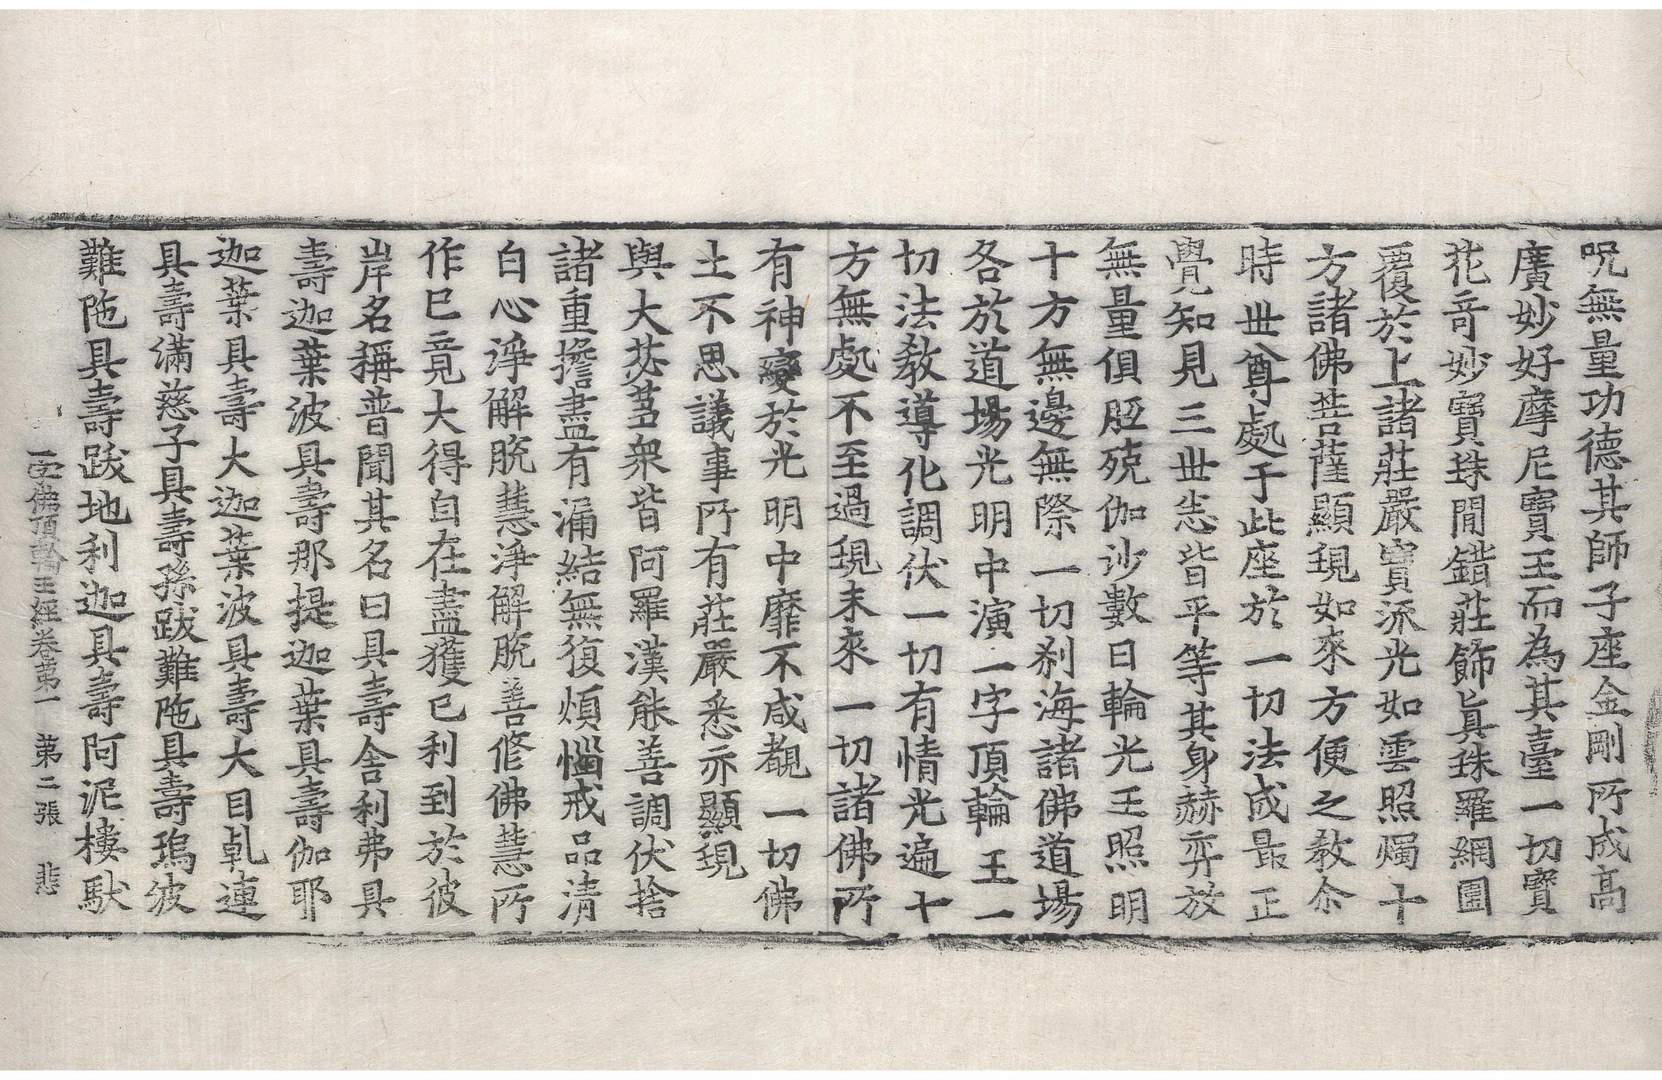 呪無量功德其師子座金剛所成高
廣妙好摩尼寶王而為其臺一切寶
花竒妙寶珠閒錯莊飾眞珠羅網圍
覆於上諸莊嚴寶流光如雲照燭十
方諸佛菩薩顯現如來方便之教尒
時世尊處于此座於一切法成最正
覺知見三世悉皆平等其身赫弈放
無量俱胝殑伽沙數日輪光王照明
十方無邊無際一切刹海諸佛道場
各於道場光明中演一字頂輪王一
切法教導化調伏一切有情光遍十
方無處不至過現未來一切諸佛所
有神變於光明中靡不咸覩一切佛
土不思議事所有莊嚴悉亦顯現
與大苾芻衆皆阿羅漢能善調伏捨
諸重擔盡有漏結無復煩惱戒品清
白心淨解脫慧淨解脫善修佛慧所
作已竟大得自在盡獲已利到於彼
岸名稱普聞其名曰具壽舍利弗具
壽迦葉波具壽那提迦葉具壽伽耶
迦葉具壽大迦葉波具壽大目乹連
具壽滿慈子具壽孫跋難陁具壽塢波
難陁具壽跋地利迦具壽阿泥樓馱
一字佛頂輪王經卷第一　第二張　悲